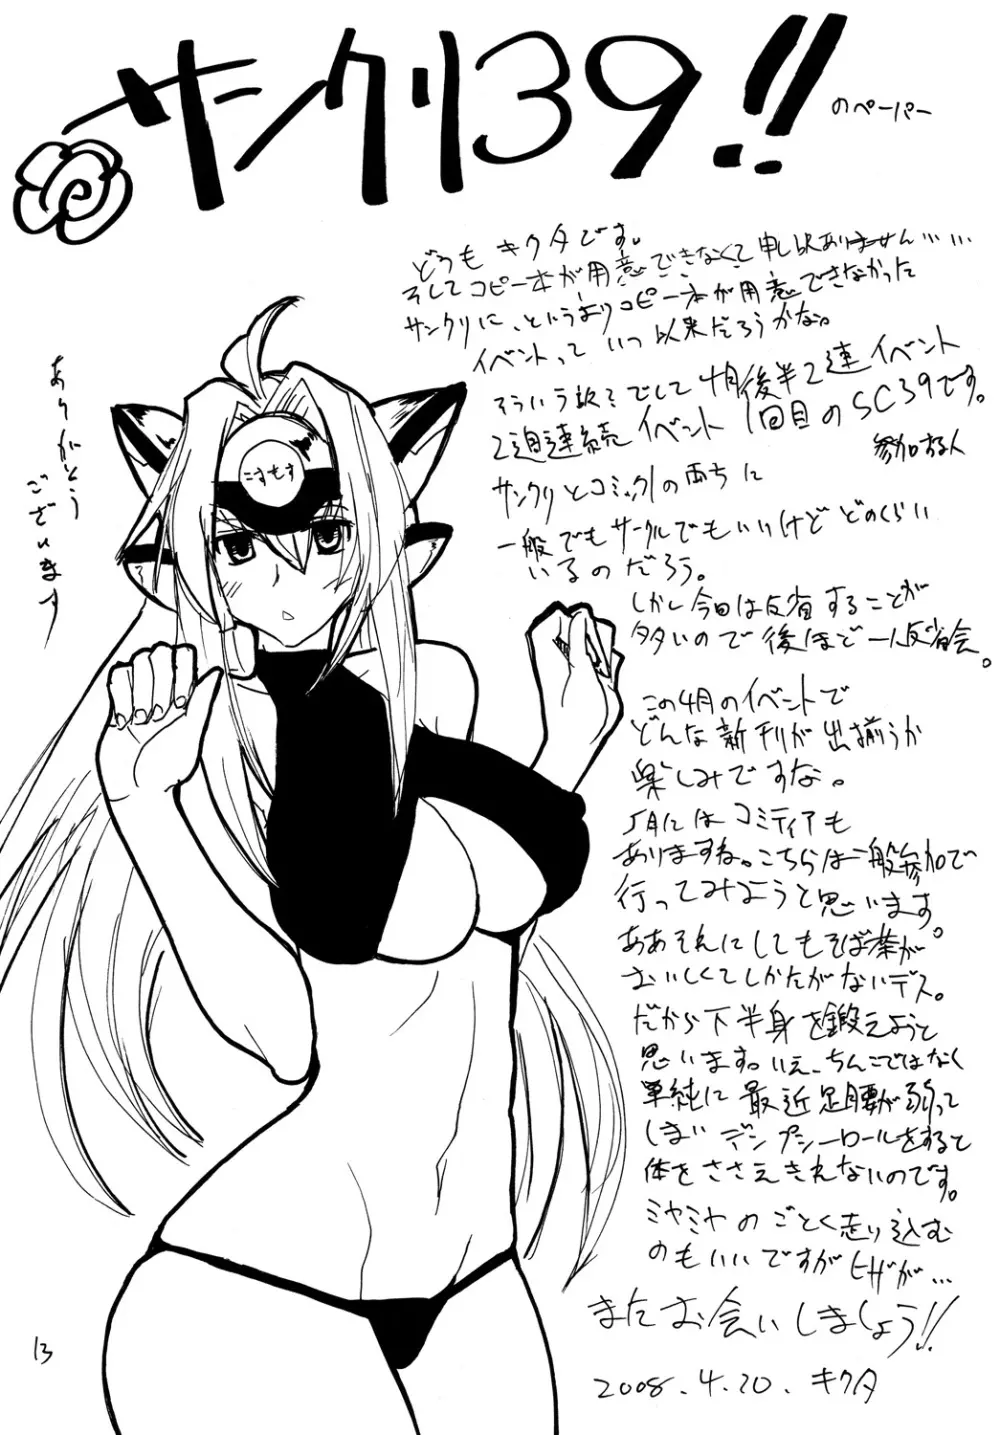 サンクリ39!!
のペーパー
どうもキクタです。
そしてコピー本が用意できなくて申し訳ありません……
サンクリに、というよりコピー本が用意できなかった
イベントっていつ以来だろうかな。
そういう訳でして4月後半2連イベント
2週連続イベント1回目のSC39です。
サンクリとコミック1の両方に
参加する人
一般でもサークルでもいいけどどのくらい
いるのだろう。
しかし今回は反省することが
多いので後ほど一人反省会。
この4月のイベントで
どんな新刊が出揃うか
楽しみですな。
5月にはコミティアも
ありますね。こちらは一般参加で
行ってみようと思います。
ああそれにしてもそば茶が
おいしくてしかたがないデス。
だから下半身を鍛えようと
思います。いえ、ちんこではなく
単純に最近足腰が弱って
しまいデンプシーロールをすると
体をささえきれないのです。
ミヤミヤのごとく走り込む
のもいいですがヒザが…
またお会いしましょう!!
2008.4.20.キクタ
ありがとう
ございます
こすもす
13